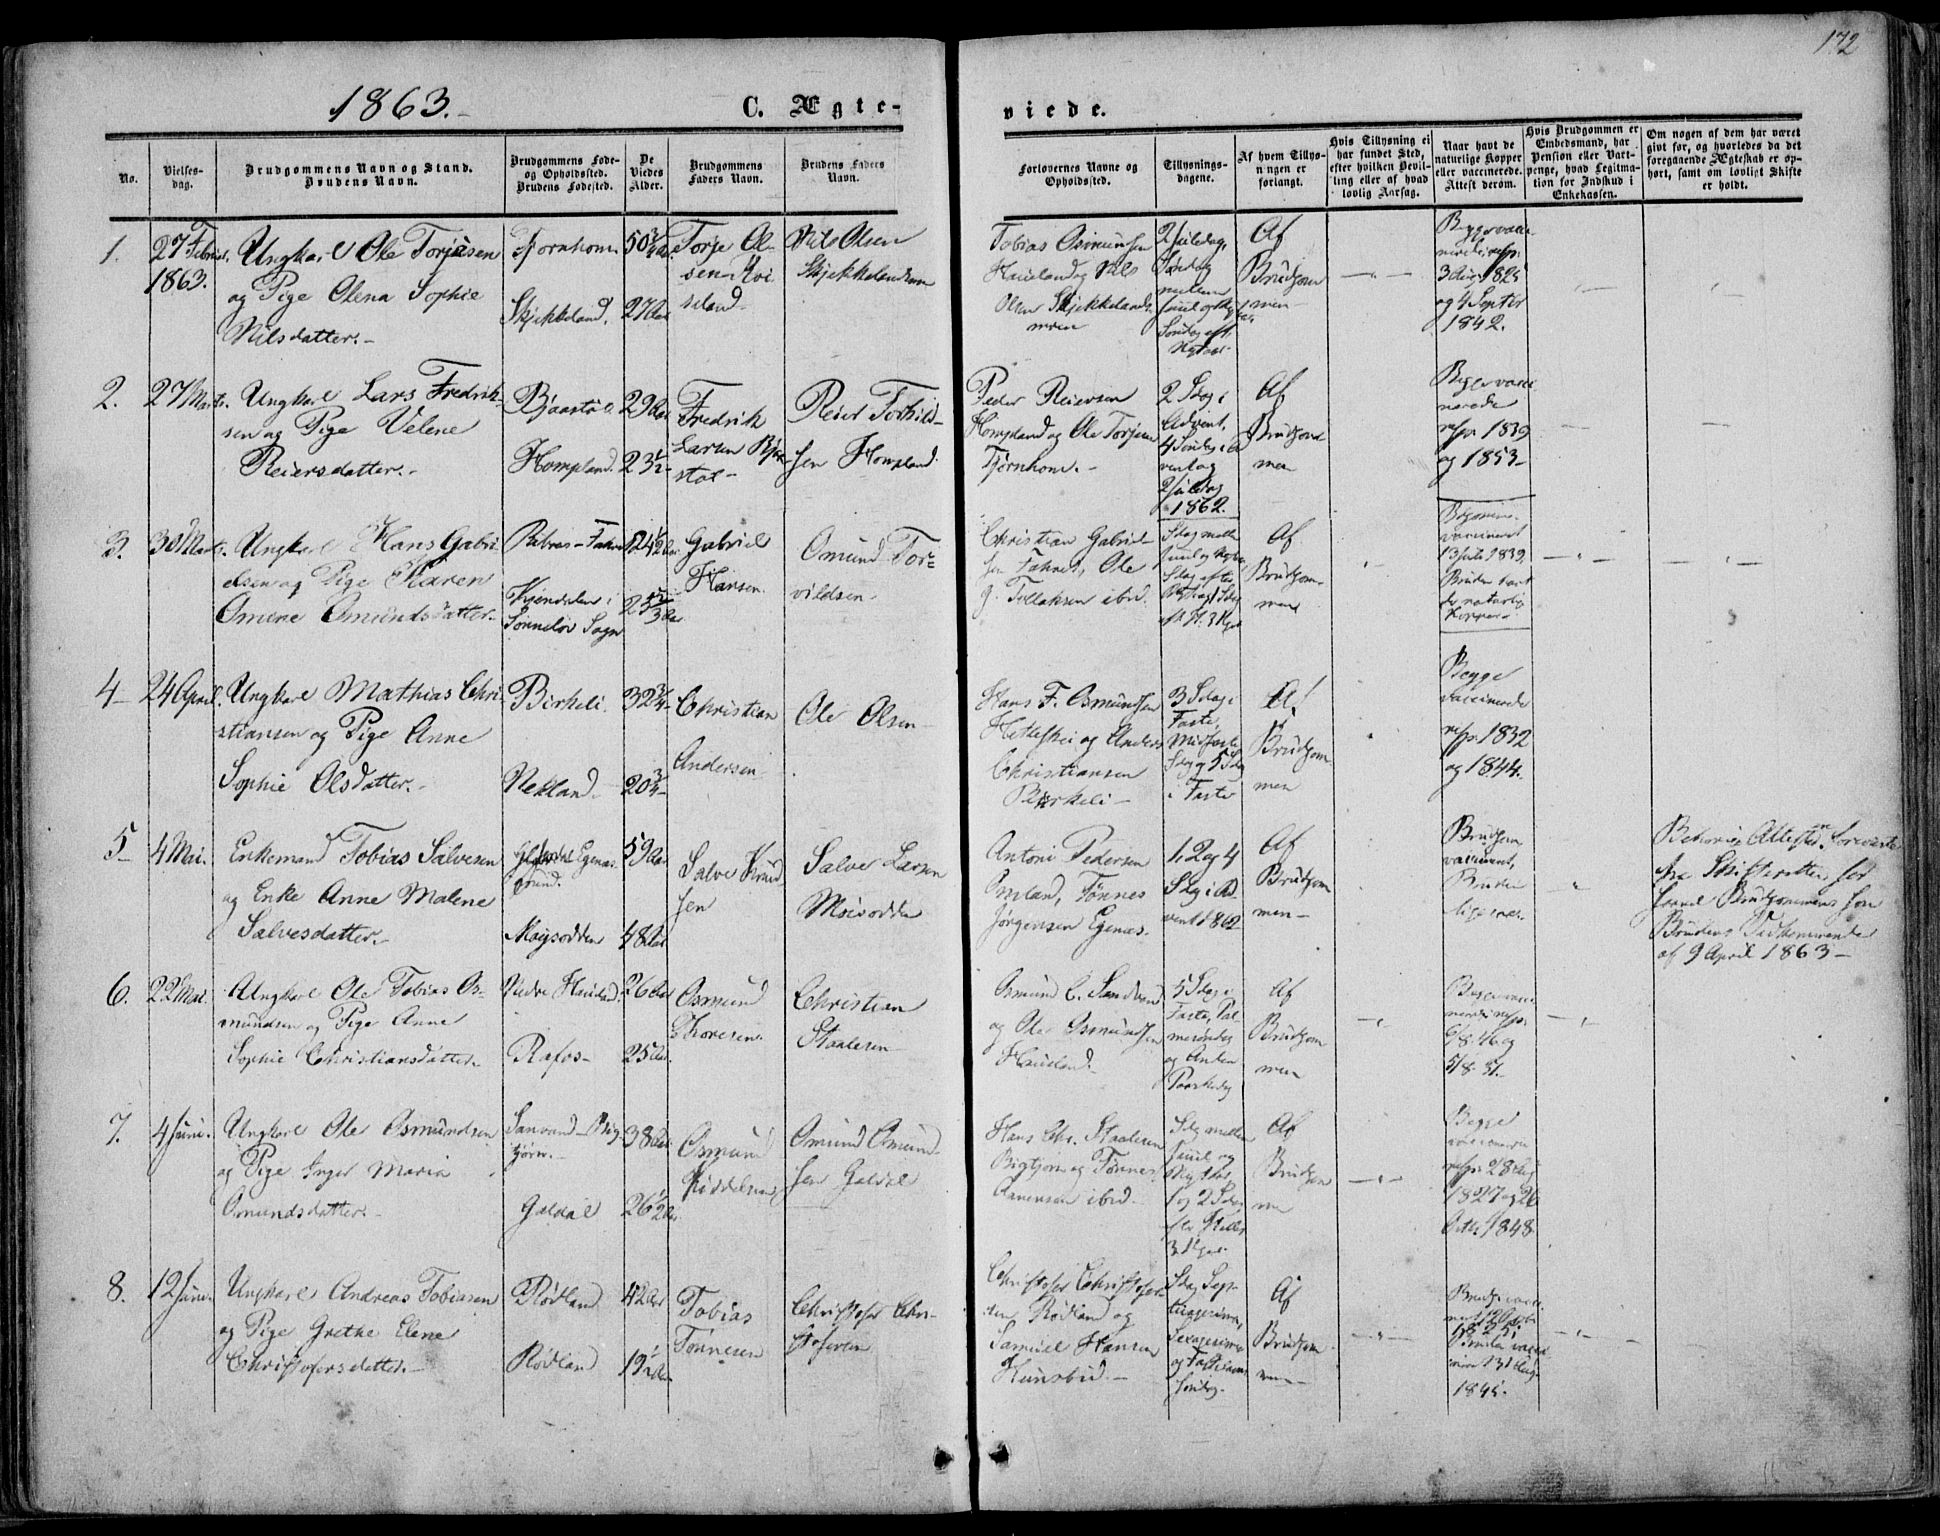 172
1863.
C. Ægte-
viede.
No.
Vielses-
dag.
Brudgommens Navn og Stand.
Brudens Navn.
Brudgommens Føde-
og Opholdssted.
Brudens Fødested.
De
Viedes
Alder.
Brudgommens
Faders Navn.
Brudens Faders
Navn.
Forlovernes Navne og
Opholdssted.
Tillysnings-
dagene.
Af hvem Tillys-
ningen er
forlangt.
Hvis Tillysning ei
har fundet Sted,
efter hvilken Bevil-
ling eller af hvad
lovlig Aarsag.
Naar havt de
naturlige Kopper
eller vaccinerede.
Attest derom.
Hvis Brudgommen er
Embedsmand, har
Pension eller Vart-
penge, hvad Legitma-
tion for Indskud i
Enkekassen.
Om nogen af dem har været
givt før, og hvorledes da det
foregaaende Ægteskab er op-
hørt, samt om lovligt Skifte
er holdt.
1.
27 Februar
1863.
Ungkarl Ole Torjusen
og Pige Olena Sophie
Nilsdatter.
Tjornhom
Skjekkeland.
50 3/4
27 Aar
Torje Ol-
sen Kvi-
seland
Nils Olsen
Skjekkelandsmoen
Tobias Osmundsen
Haueland og Nils
Olsen Skjekkelands-
moen
2 Juledag,
Søndag
mellem
Juul og Nytaar
Søndag eft.
Nytaar
Af
Brudgom
men
Begge vacci-
nerede resp.
3 Aug. 1825
og 4 Septbr
1842.
2.
27 Marts.
Ungkarl Lars Fredrik-
sen og Pige Velene
Reiersdatter.
Bjaastøl
Hompland.
29 Aar
23 1/2
Fredrik
Larsen Bjaa-
støl
Reier Torkild-
sen Hompland.
Peder Reiersen
Hompland og Ole Torjusen
Tjørnhom.
2 Sdag i
Advent,
4 Søndag i Ad
vent og
2 Juledag
1862.
Af
Brudgom
men
Begge vacci
nerede
resp. 1839
og 1853
3.
30 Marts.
Ungkarl Hans Gabri-
elsen og Pige Karen
Omine Omundsdatter.
Sønneløv Sogn
24 1/2 Aar
Gabriel
Hansen.
Omund Tor-
vildsen.
Christian Gabriel-
sen Ole
G. Tollaksen ibid.
Sdag mellem
Juul og Nytaar
Sdag efter
Nytaar, 1 Sdag
eft. H. 3 Kgr.
Af
Brudgom-
men
Brudgommen
vaccineret
13 Juli 1839.
Bruden havt
de naturlige
Kopper
4
24 April.
Ungkarl Mathias Chri-
stiansen og Pige Anne
Sophie Olsdatter.
Birkeli.
Nekland.
32 3/4
20 3/4
Christian
Andersen
Ole Olsen
Hans F. Osmundsen
og Anders
Christiansen
Birkeli
3 Sdag i
Faste,
Midfaste
Sdag og 5 Sdag
i Faste
Af
Brudgom
men
Begge
vaccinerede
resp. 1832
og 1844.
5
4 Mai.
Enkemand Tobias Salvesen
og Enke Anne Malene
Salvesdatter.
Egenæs
Grund.
Moisodden
59 Aar
48 Aar
Salve Knud-
sen
Salve Larsen
Moisodden
Antoni Pedersen
Omland, Tønnes
Jørgensen Egenæs.
1. 2 og 4
Sdag i Ad
vent 1862
Af
Brudgom
men
Brudgom.
vaccineret,
Bruden
ligesaa.
Behørige Attester forevist
fra Skifteretten for
saavel Brudgommens som
Brudens Vedkommende
af 9 April 1863
6.
22 Mai.
Ungkarl Ole Tobias Os-
mundsen og Pige Anne
Sophie Christiansdatter.
Nedre Haueland
Rafos
26 Aar
25 Aar
Osmund
Thoresen.
Christian
Staalesen
Osmund C. Sandvand
og Ole Osmundsen
Haueland.
5 Sdag i
Faste, Pal-
mesøndag
og Anden
Paaskedag
Af
Brudgom
men
Begge vacci-
nerede resp.
6/8 46 og
5/8 51.
7.
4 Juni.
Ungkarl Ole Osmundsen
og Pige Inger Maria
Omundsdatter.
Sanvand Big-
tjørn.
Galdal
38 Aar
26 1/2 Aar
Osmund
Kiddelsen
Omund Omund-
sen Galdal
Hans Chr. Staalesen
Bigtjørn og Tønnes
Aanensen ibid.
Sdag mellem
Juul og
Nytaar,
1 og 2 Sdag
efter Hellig
3 Kgr.
Af
Brudgom
men
Begge
vaccinerede
resp. 28 Aug
1827 og 26
Octbr 1848
8.
12 Juni.
Ungkarl Andreas Tobiasen
og Pige Grethe Elene
Christofersdatter.
Rødland
Rødland
42 Aar
19 1/2 Aar
Tobias
Tønnesen
Christofer Chri-
stofersen
Christofer Christofer-
sen Rødland og
Samuel Hansen
Hunsbed.
Sdag Sep-
tuagesima,
Sexagesima
og Fastelavns
Søndag.
Af
Brudgom
men
Brudg. vacci-
1825.
Bruden vacci-
neret 31 Aug.
1845.